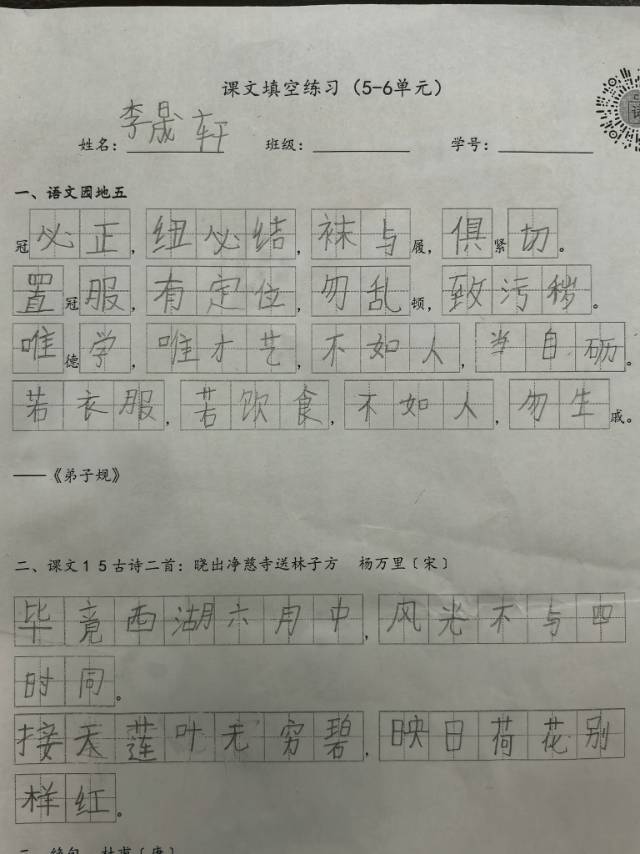 课文填空练习（5-6单元）
姓名：李晟轩 班级： 学号：
一、语文园地五
冠必正，纽必结，袜与履，俱紧切。
置冠服，有定位，勿乱顿，致污秽。
唯德学，唯才艺，不如人，当自砺。
若衣服，若饮食，不如人，勿生戚。
——《弟子规》
二、课文15古诗二首：晓出净慈寺送林子方 杨万里〔宋〕
毕竟西湖六月中，风光不与四
时同。
接天莲叶无穷碧，映日荷花别
样红。